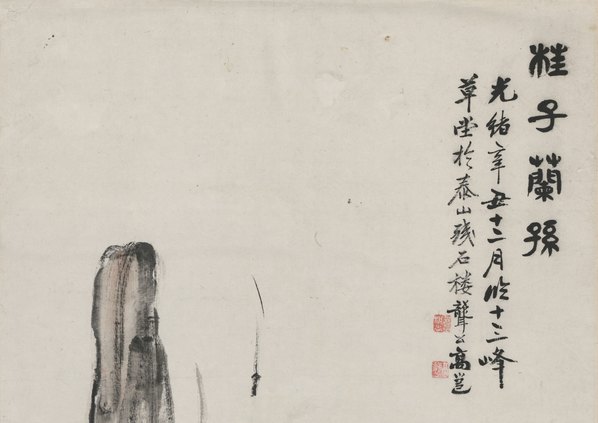 桂子蘭孫
光緒辛丑十二月臨十三峰
草堂於泰山殘石樓聾公高邕